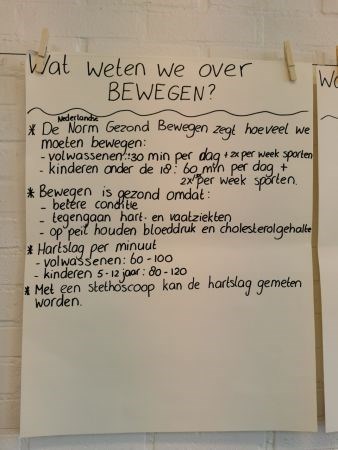 Wat weten we over
BEWEGEN?
Nederlandse
* De Norm Gezond Bewegen zegt hoeveel we
moeten bewegen:
- volwassenen: 30 min per dag + 2x per week sporten
- kinderen onder de 18: 60 min per dag +
2x per week sporten.
* Bewegen is gezond omdat:
- betere conditie
- tegengaan hart- en vaatziekten
- op peil houden bloeddruk en cholesterolgehalte
* Hartslag per minuut
- volwassenen: 60-100
- kinderen 5-12 jaar: 80-120
* Met een stethoscoop kan de hartslag gemeten
worden.